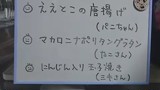 ええとこの唐揚げ
(パニちゃん)
マカロニナポリタングラタン
(たこさん)
にんじん入り玉子焼き
(三牛さん)